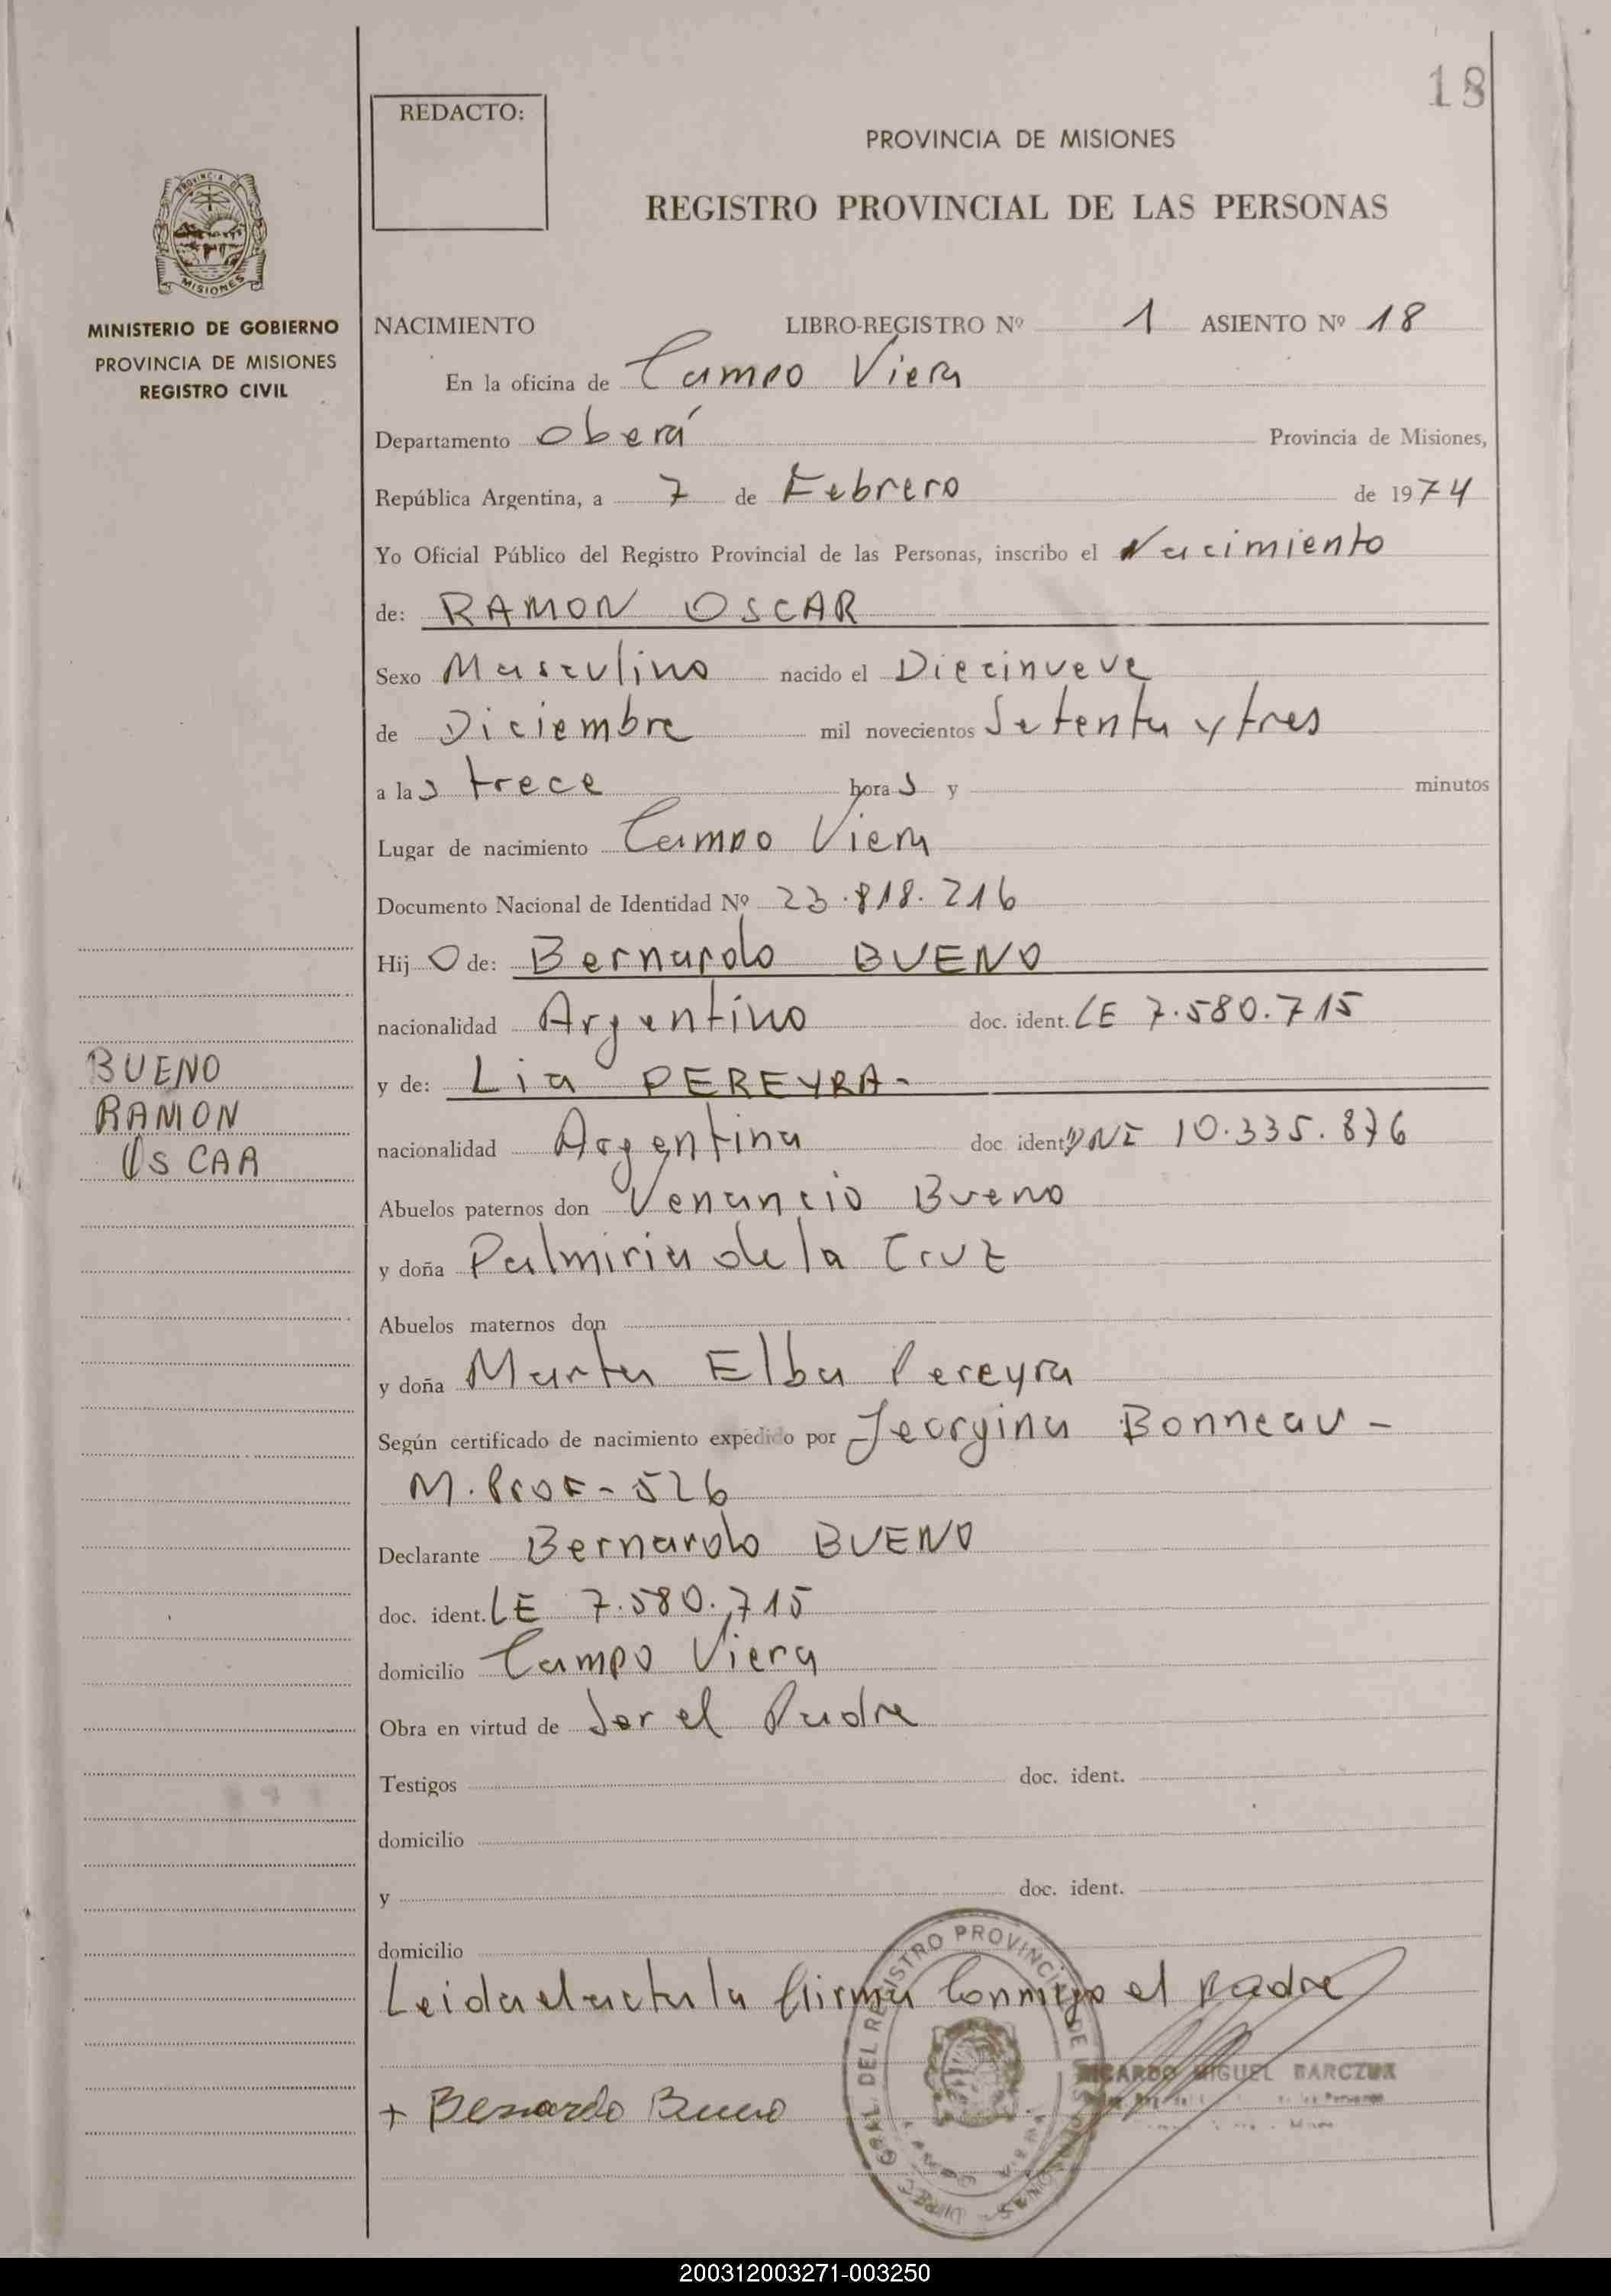 18
REDACTO:
PROVINCIA DE MISIONES
REGISTRO PROVINCIAL DE LAS PERSONAS
PROVINCIA DE
MISIONES
MINISTERIO DE GOBIERNO
PROVINCIA DE MISIONES
REGISTRO CIVIL
NACIMIENTO LIBRO-REGISTRO Nº 1 ASIENTO Nº 18
En la oficina de Campo Viera
Departamento Oberá Provincia de Misiones,
República Argentina, a 7 de Febrero de 1974
Yo Oficial Público del Registro Provincial de las Personas, inscribo el Nacimiento
de: RAMON OSCAR
Sexo Masculino nacido el Diecinueve
de Diciembre mil novecientos Setenta y tres
a las trece horas y minutos
Lugar de nacimiento Campo Viera
Documento Nacional de Identidad Nº 23.818.216
Hijo de: Bernardo BUENO
nacionalidad Argentino doc. ident. LE 7.580.715
y de: Lia PEREYRA-
nacionalidad Argentina doc ident DNI 10.335.876
Abuelos paternos don Venancio Bueno
y doña Palmiria de la Cruz
Abuelos maternos don
y doña Marta Elba Pereyra
Según certificado de nacimiento expedido por Jeorgina Bonneau -
M. Prof - 526
Declarante Bernardo BUENO
doc. ident. LE 7.580.715
domicilio Campo Viera
Obra en virtud de Ser el Padre
Testigos doc. ident.
domicilio
y doc. ident.
domicilio
Leida el acta la firma Conmigo el padre
+ Bernardo Bueno
BUENO
RAMON
OSCAR
DIREC. GRAL. DEL REGISTRO PROVINCIAL DE LAS PERSONAS
CAMPO VIERA
RICARDO MIGUEL BARCZUK
200312003271-003250